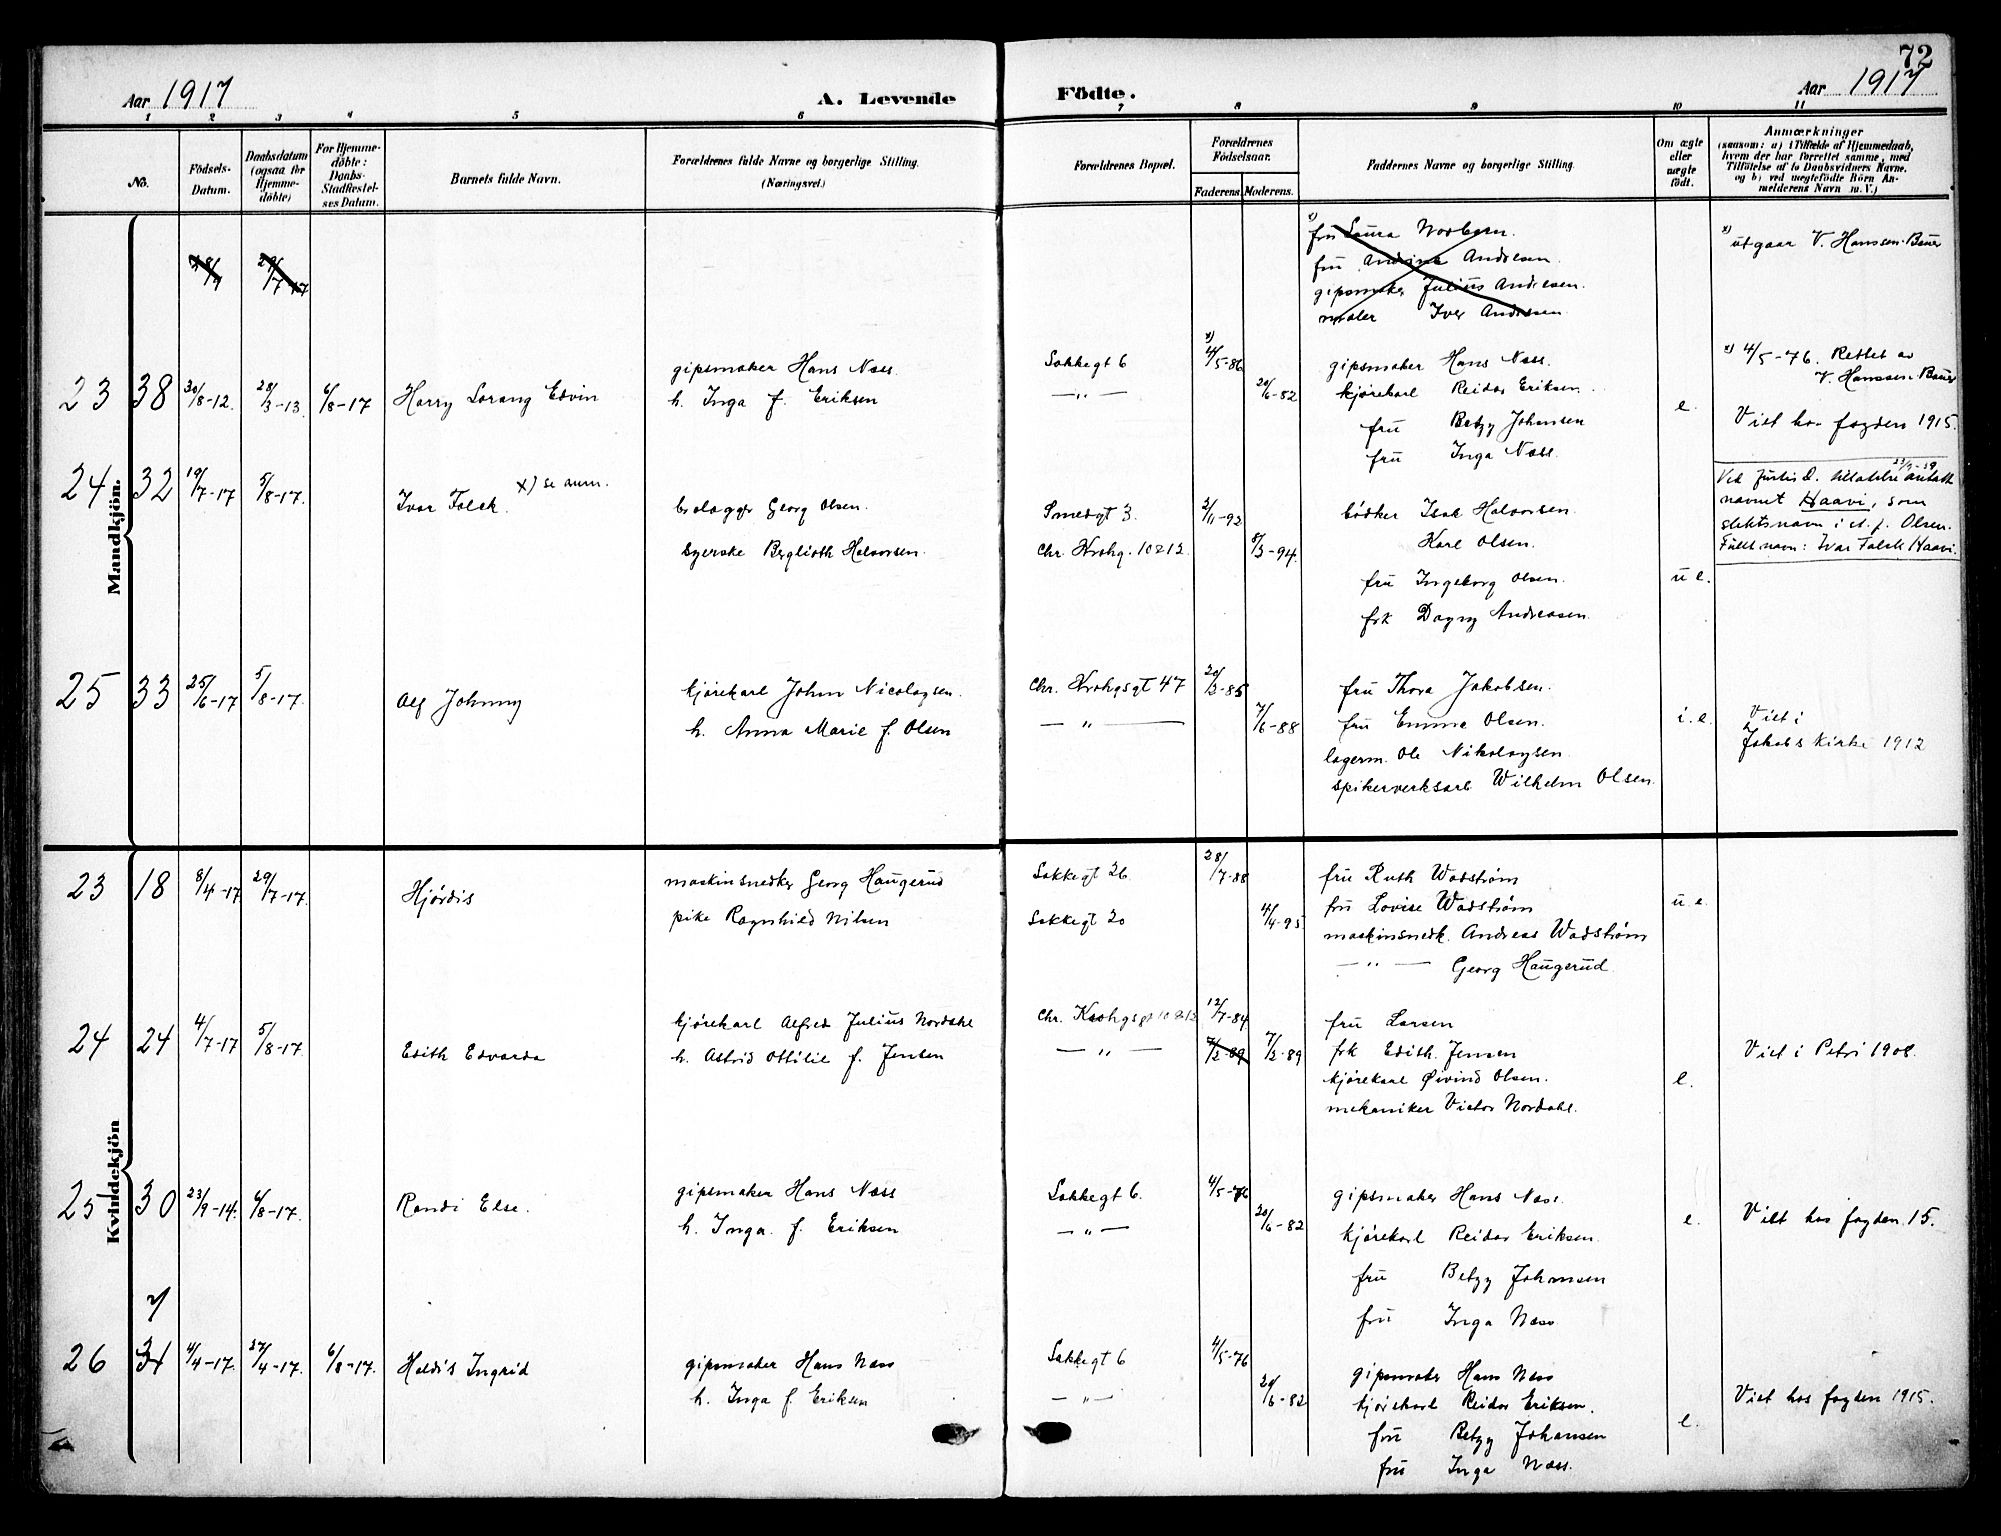 72
Aar 1917
A. Levende
Födte.
Aar 1917
1 2 3 4 5 6 7 8 9 10 11
No.
Födsels-
Datum.
Daabsdatum
(ogsaa for
Hjemme-
döbte)
For Hjemme-
döbte:
Daabs-
Stadfæstel-
ses Datum.
Barnets fulde Navn.
Forældrenes fulde Navne og borgerlige Stilling.
(Næringsvei.)
Forældrenes Bopæl.
Forældrenes
Födselsaar.
Faderens. Moderens.
Faddernes Navne og borgerlige Stilling.
Om ægte
eller
uægte
födt.
Anmærkninger
(saasom: a) i Tilfælde af Hjemmedaab,
hvem der har forrettet samme, med
Tilföielse af to Daabsvidners Navne,
og b) ved uægtefödte Börn An-
melderens Navn m. V.)
Mandkjön.
fru Laura
fru Andrine Andresen.
gipsmaker Julius Andresen.
maler Iver Andresen
x) utgaar V. Hanssen-Bauer
23 38 30/8-12. 28/3-13. 6/8-17 Harry Lorang Edvin
gipsmaker Hans Næss.
h. Inga f. Eriksen
Lakkegt 6
— " —
x) 4/5-86
20/6-82
gipsmaker Hans Næss.
kjørekarl Reidar Eriksen.
fru Betzy Johansen
fru Inga Næss.
e.
x) 4/5-76. Rettet av
V. Hanssen-Bauer
Viet hos fogden 1915.
24 32 19/7-17 5/8-17. Ivar Falck. x) se anm.
Georg Olsen.
syerske Berglioth Halvorsen.
Smedgt 3.
Chr. Krohg. 10212
2/11-92
8/3-94.
bødker Isak Halvorsen.
Karl Olsen.
fru Ingeborg Olsen.
frk Dagny Andreasen
u e.
Ved Justis D. tillatelse antatt
navnet Haavi, som
slektsnavn i st. f. Olsen.
Fullt navn: Ivar Falck Haavi.
25 33 25/6-17 5/8-17. Alf Johnny
kjørekarl John Nicolaysen.
h. Anna Marie f. Olsen
Chr. Krohgsgt 47
— " —
20/3-85
7/6-88
fru Thora Jakobsen.
fru Emma Olsen.
lagerm. Ole Nikolaysen.
spikerverksarb Wilhelm Olsen.
i. e.
Viet i
Jakobs kirke 1912
Kvindekjön
23 18 8/4-17 29/7-17. Hjørdis
maskinsnedker Georg Haugerud
pike Ragnhild Nilsen
Lakkegt 26.
Lakkegt 20
28/7-88
4/4-95
fru Ruth Wadstrøm
fru Lovise Wadstrøm
maskinsnedk. Andreas Wadstrøm
— " — Georg Haugerud.
u e.
24 24 4/7-17 5/8-17. Edith Edvarda
kjørekarl Alfred Julius Nordahl
h. Astrid Ottilie f. Jensen
Chr. Krohgsgt 10212
— " —
12/7-84
7/2-89 7/2-89
fru Larsen
frk Edith. Jensen
kjørekarl Øivind Olsen.
mekaniker Victor Nordahl.
e.
Viet i Petri 1908.
25 30 23/9-14. 6/8-17. Randi Else.
gipsmaker Hans Næss
h. Inga. f. Eriksen
Lakkegt 6.
— " —
4/5-76
20/6-82
gipsmaker Hans Næss.
kjørekarl Reidar Eriksen.
fru Betzy Johansen
fru Inga Næss
e.
Viet hos fogden 15.
26 4/4-17. 27/4-17. 6/8-17. Haldis Ingrid
gipsmaker Hans Næss
h. Inga f. Eriksen
Lakkegt 6
— " —
4/5-76
20/6-82
gipsmaker Hans Næss
kjørekarl Reidar Eriksen.
fru Betzy Johansen
fru Inga Næss.
e.
Viet hos fogden 1915.